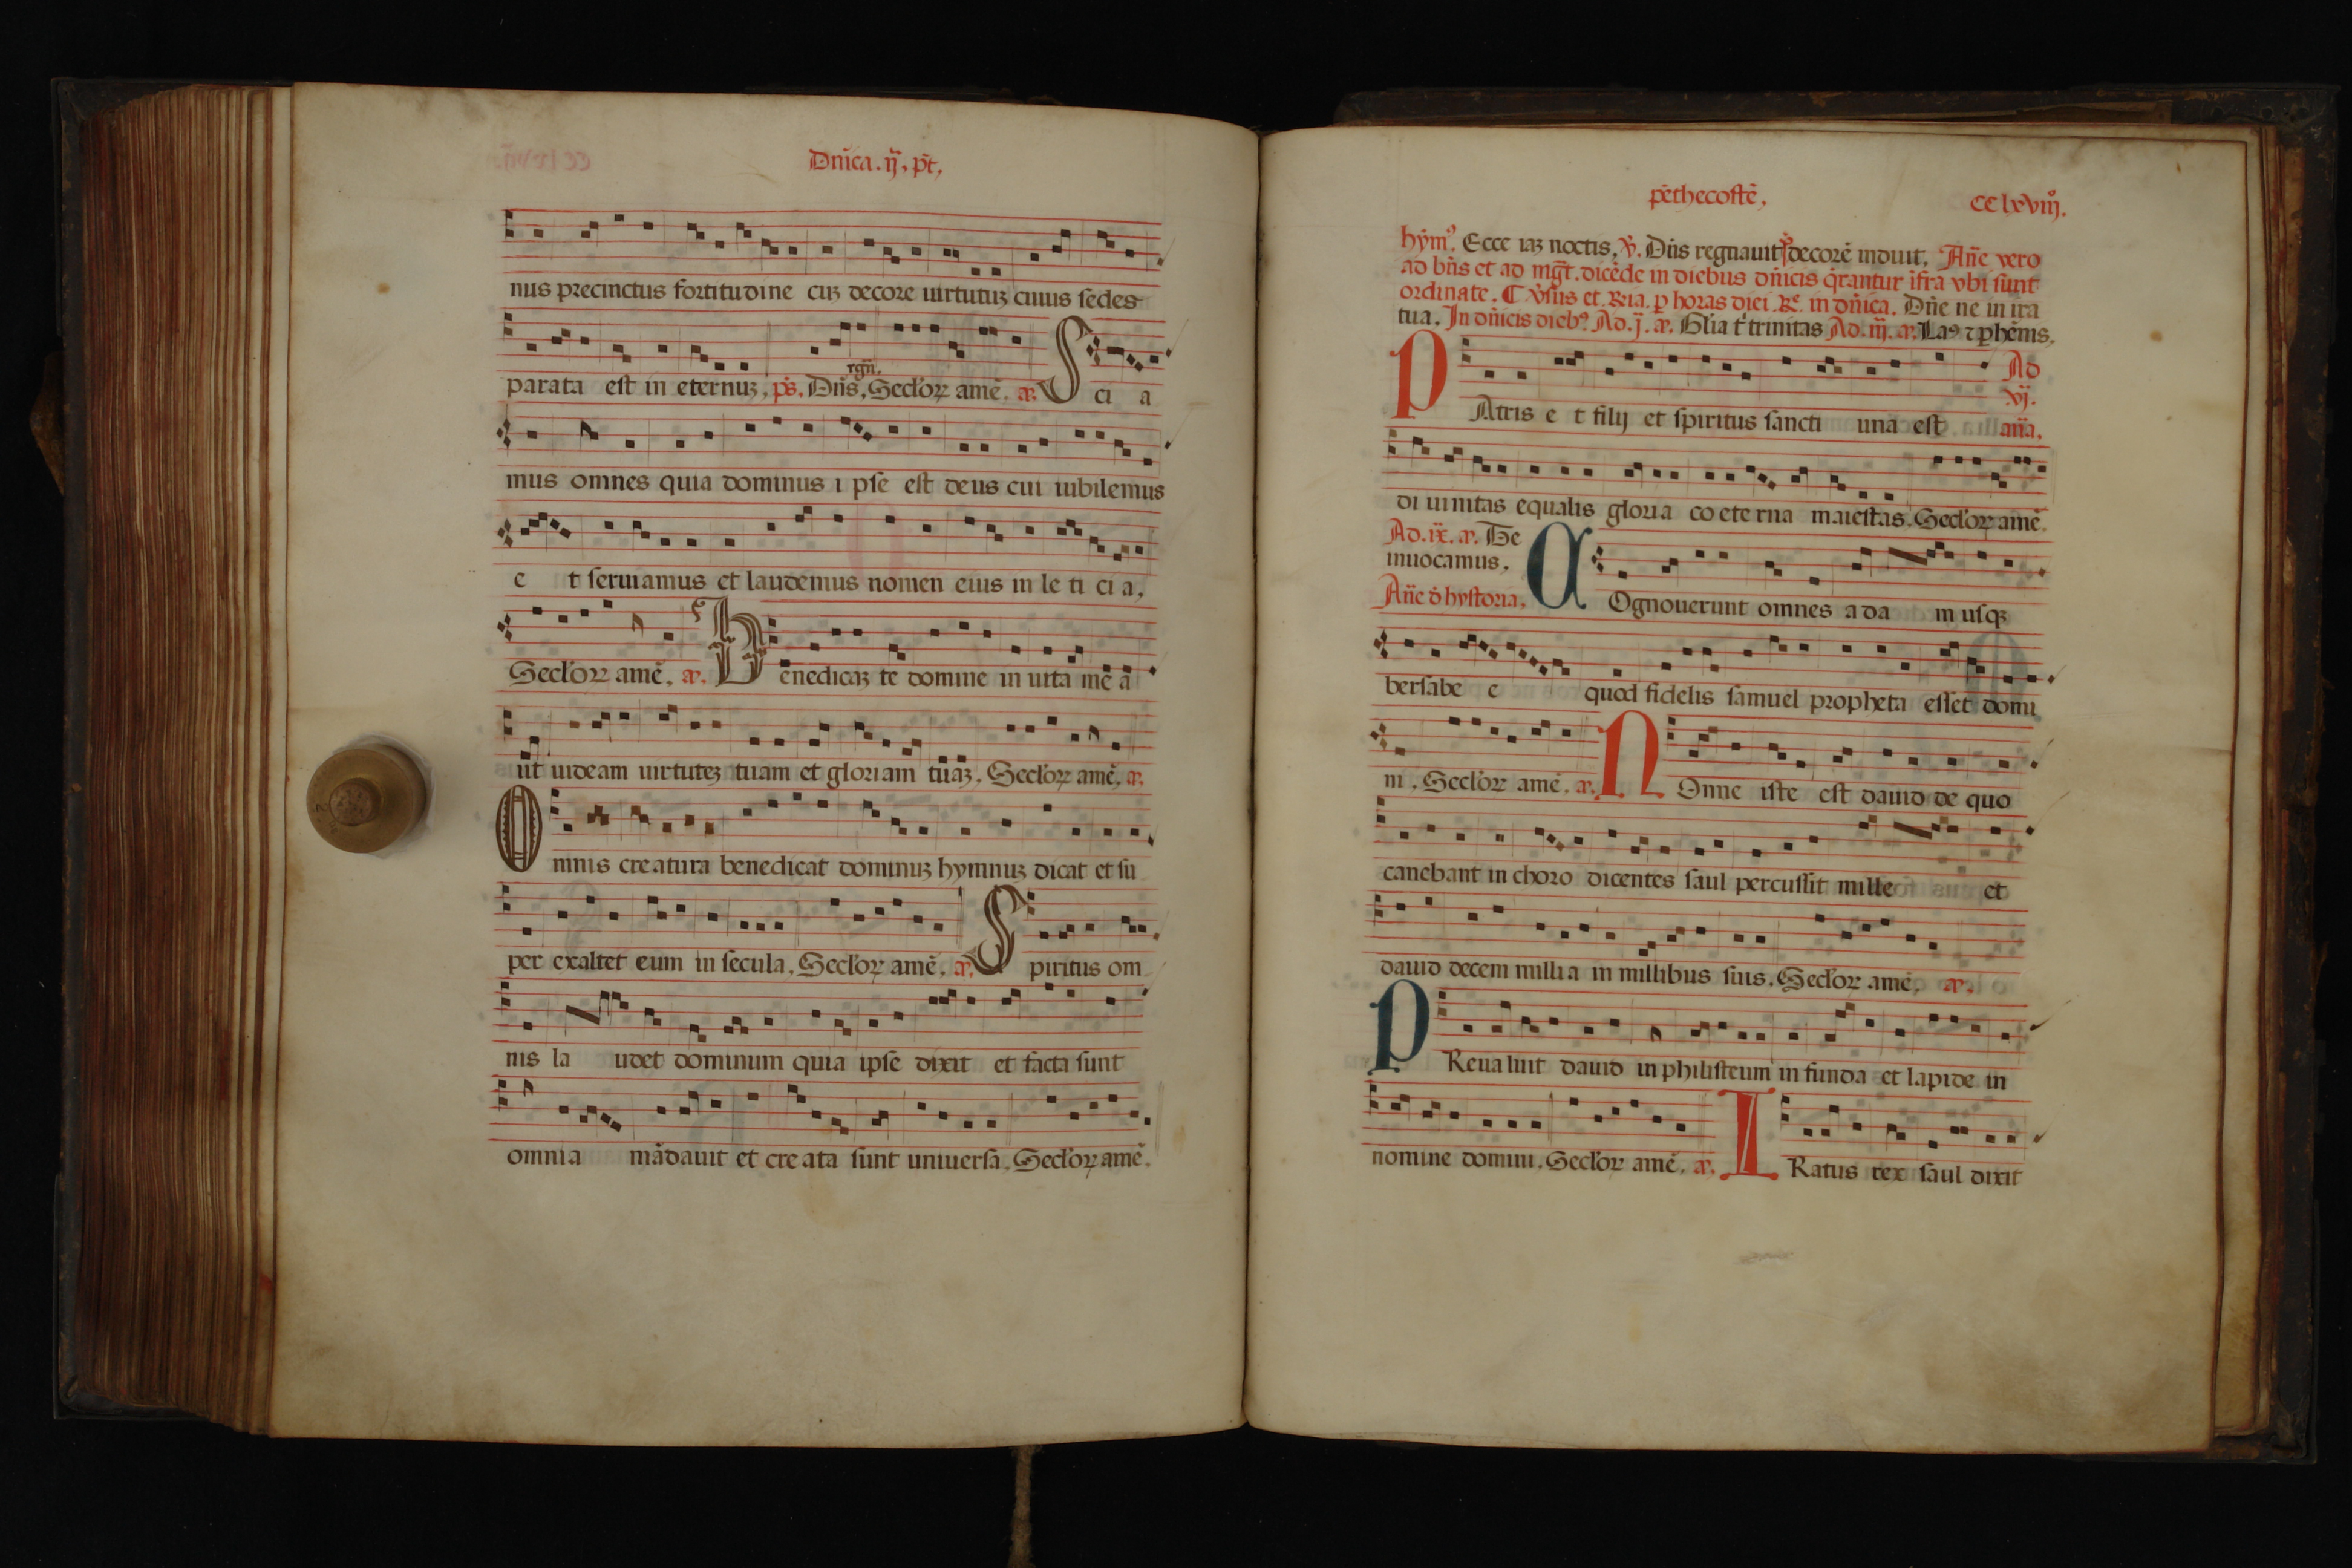 Dnĩca. ij. pt̃,
nus precinctus fortitudine cuꝫ decore uirtutuꝫ cuius sedes
parata est in eternuꝫ, ps̃. Dñs rgñ. Seclorꝝ amẽ. æ. Sci a
mus omnes quia dominus i pse est deus cui iubilemus
e t seruiamus et laudemus nomen eius in le ti ci a,
Seclorꝝ amẽ. æ. Benedicaꝫ te domine in uita mẽ a
ut uideam uirtuteꝫ tuam et gloriam tuaꝫ. Seclorꝝ amẽ. æ.
Omnis creatura benedicat dominuꝫ hymnuꝫ dicat et su
per exaltet eum in secula. Seclorꝝ amẽ. æ. Spiritus om
nis la udet dominum quia ipse dixit et facta sunt
omnia mãdauit et cre ata sunt uniuersa. Seclorꝝ amẽ.
pẽthecostẽ,
CClxviiiº.
hym̃ꝰ. Ecce iaꝫ noctis. ℣. Dñs regnauit decorẽ induit. Añe vero
ad bñs et ad mg̃t. dicẽde in diebus dñicis q̃rantur ĩfra vbi sunt
ordinate. ¶ v̉sus et Ria. ꝑ horas diei. Rͤ. in dñica. Dñe ne in ira
tua. In dñicis diebꝰ Ad. j̃. æ. Glĩa t' trinitas Ad. iij. æ. Laꝰ ⁊ ꝑhẽnis.
PAtris e t filij et spiritus sancti una est Ad vj. añа.
di uinitas equalis gloria co ete rna maiestas. Seclorꝝ amẽ.
Ad. ix. æ. Te
inuocamus.
Añe d̉ hystoria.
COgnouerunt omnes a da m usqꝫ
bersabe e quod fidelis samuel propheta esset domi
ni. Seclorꝝ amẽ. æ. NOnne iste est dauid de quo
canebant in choro dicentes saul percussit mille et
dauid decem millia in millibus suis. Seclorꝝ amẽ. æ.
PReualuit dauid in philisteum in funda et lapide in
nomine domini. Seclorꝝ amẽ. æ. IRatus rex saul dixit